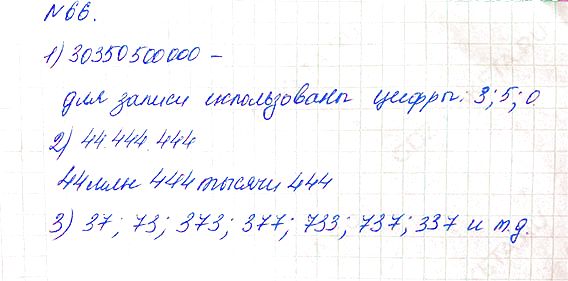 №66.
1) 30350500000 –
для записи использованы цифры: 3; 5; 0.
2) 44.444.444
44 млн 444 тысячи 444
3) 37; 73; 373; 377; 733; 737; 337 и т.д.